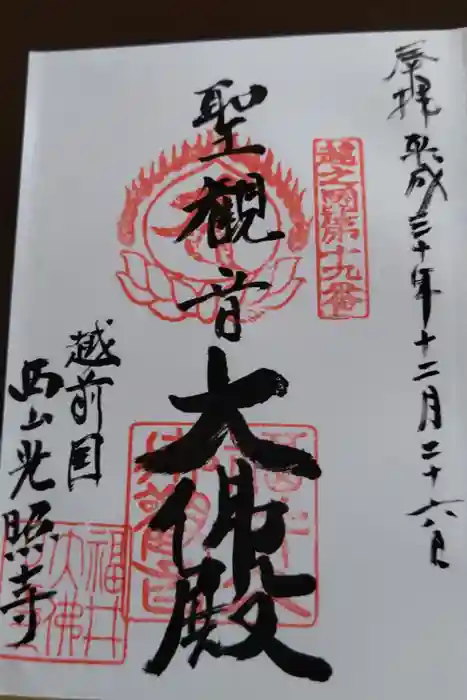 奉拝 平成三十年十二月二十六日
越之国第十九番
聖観音
大佛殿
越前国
西山光照寺
福井
大佛